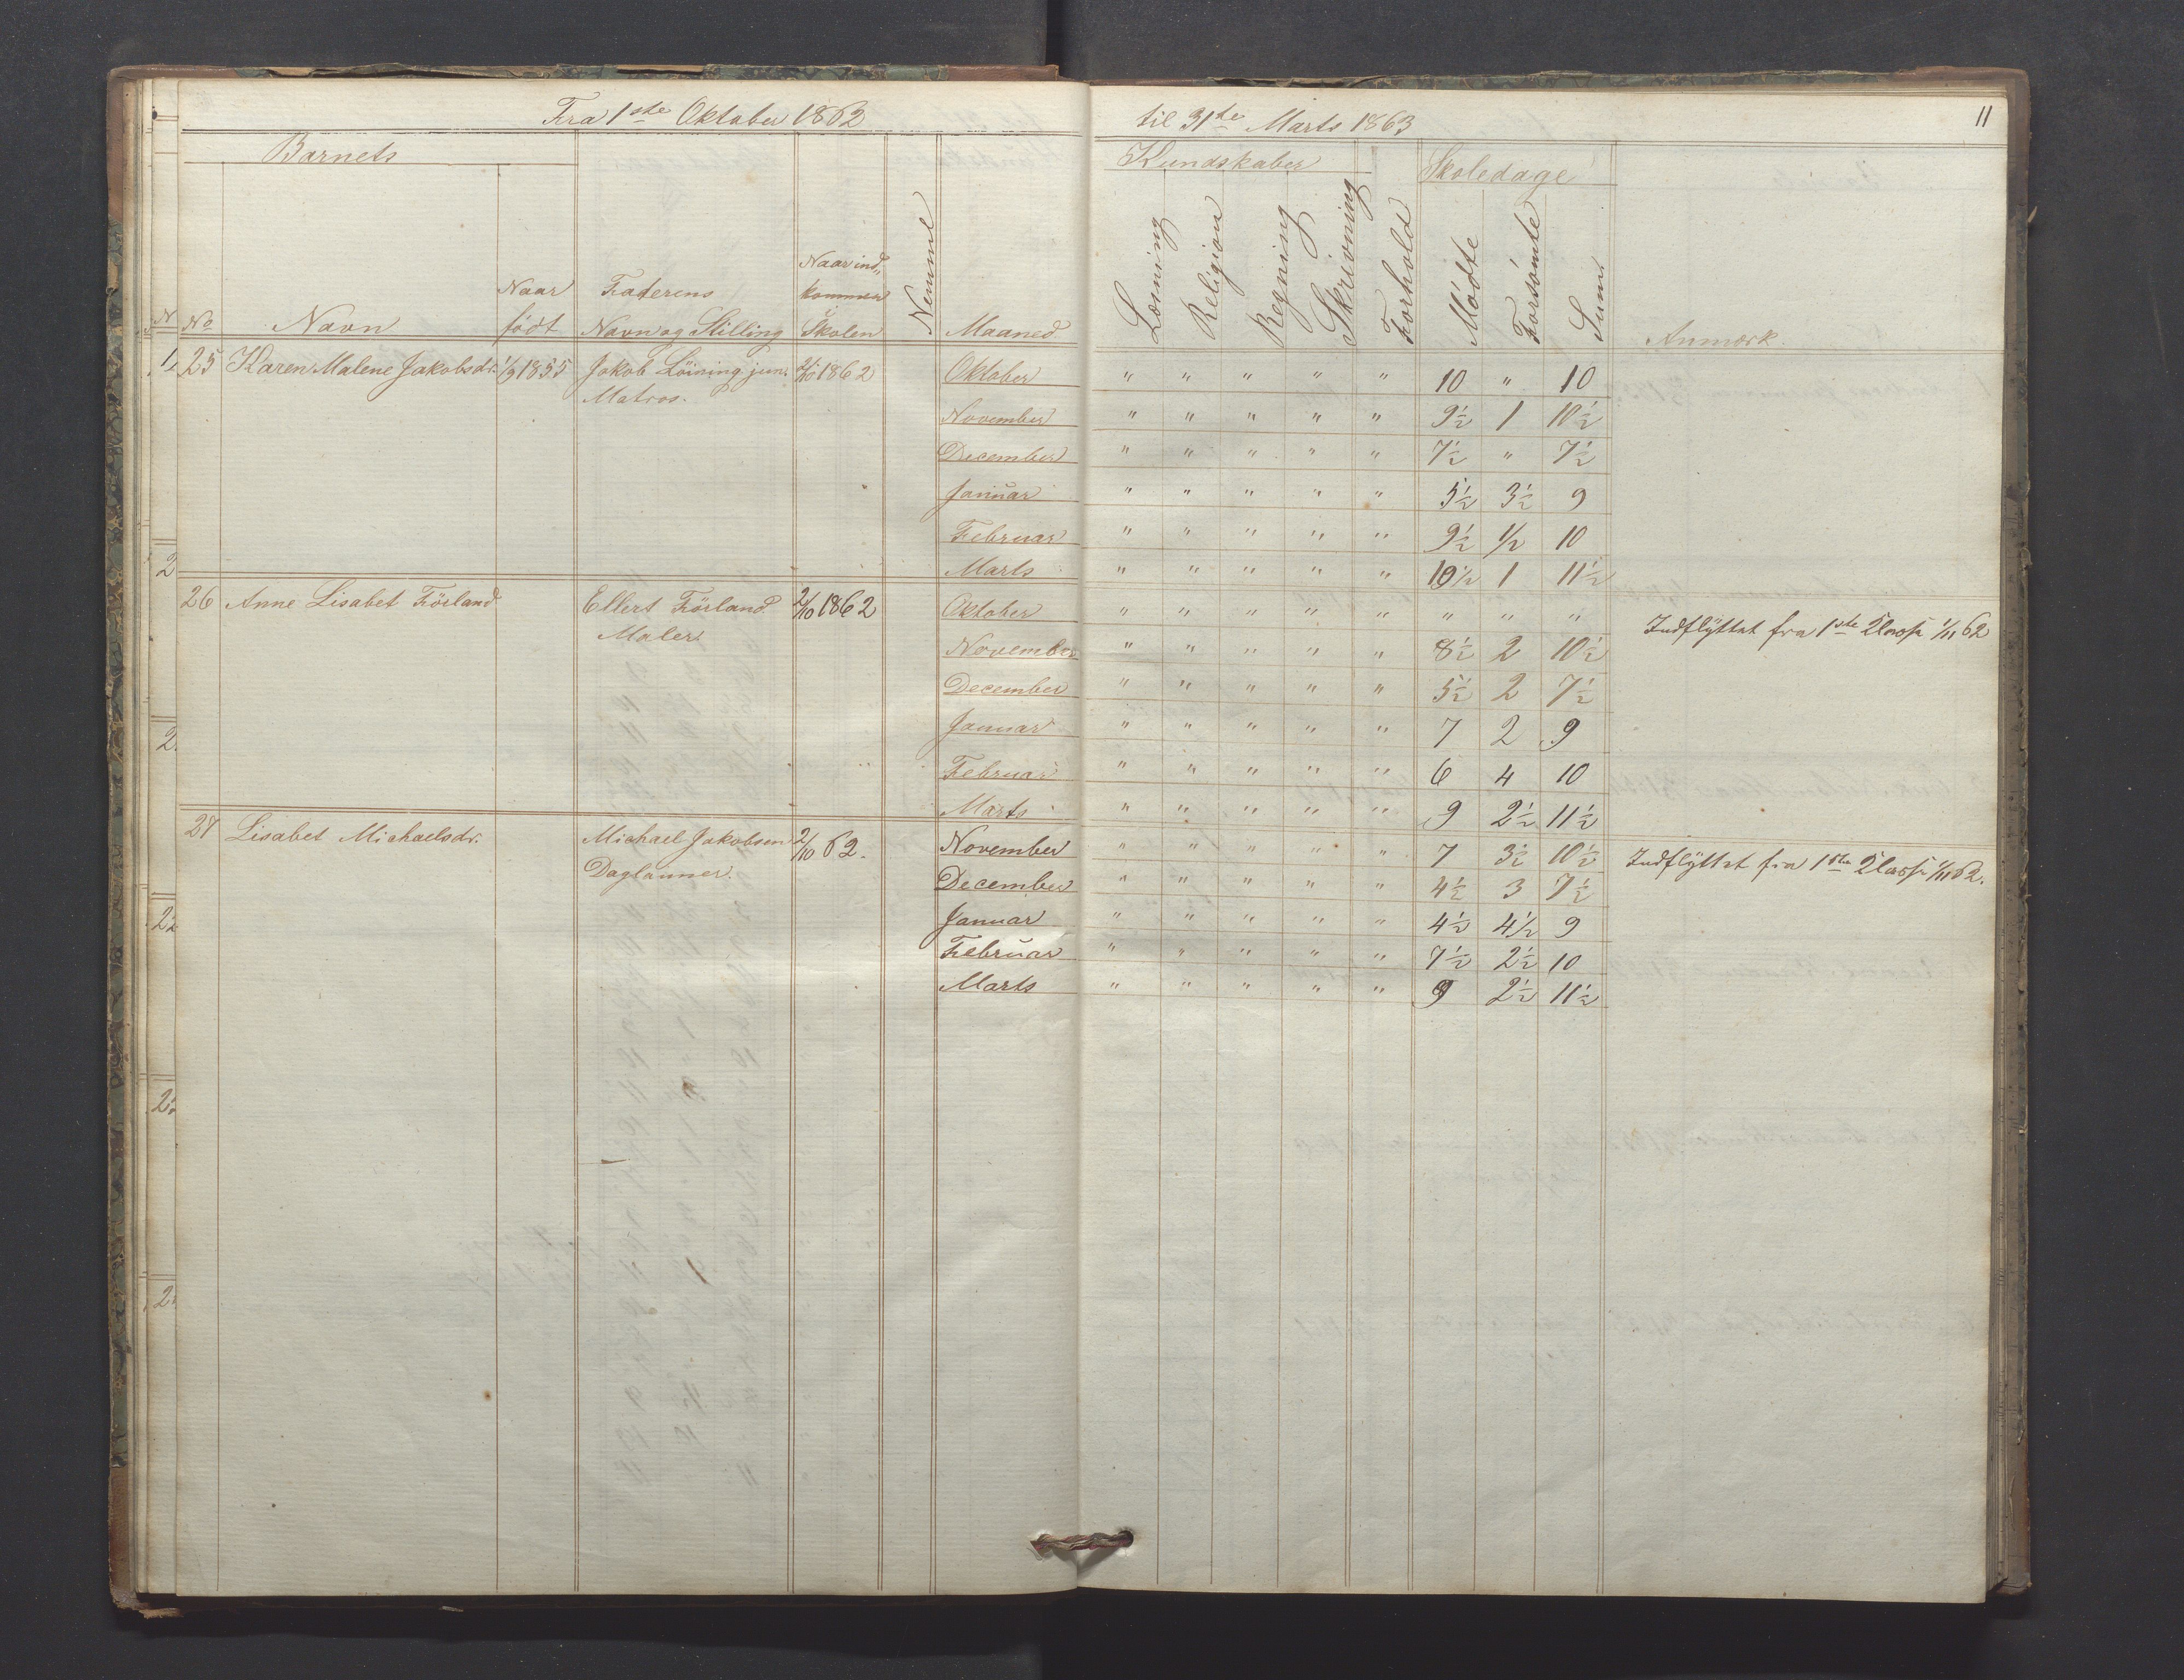 Fra 1ste Oktober 1862 til 31te Marts 1863 11
Barnets Kundskaber Skoledage
No Navn Naar født Faderens Navn og Stilling Naar ind„kommen i Skolen Nemme Maaned Læsning Religion Regning Skrivning Forhold Mødte Forsømte Sum Anmærk.
25 Karen Malene Jakobsdr. 1/9 1855 Jakob Löining jun. 2/10 1862 Oktober " " " " " 10 " 10
Matros. November " " " " " 9½ 1 10½
December " " " " " 7½ " 7½
Januar " " " " " 5½ 3½ 9
Februar " " " " " 9½ ½ 10
Marts " " " " " 10½ 1 11½
26 Anne Lisabet Försland Ellert Försland 2/10 1862 Oktober " " " " " " " " Indflyttet fra 1ste Classe 1/11 62
Maler. November " " " " " 8½ 2 10½
December " " " " " 5½ 2 7½
Januar " " " " " 7 2 9
Februar " " " " " 6 4 10
Marts " " " " " 9 2½ 11½
27 Lisabet Michaelsdr. Michael Jakobsen 2/10 62. November " " " " " 7 3½ 10½ Indflyttet fra 1ste Classe 1/11 62.
Daglønner. December " " " " " 4½ 3 7½
Januar " " " " " 4½ 4½ 9
Februar " " " " " 7½ 2½ 10
Marts " " " " " 9 2½ 11½